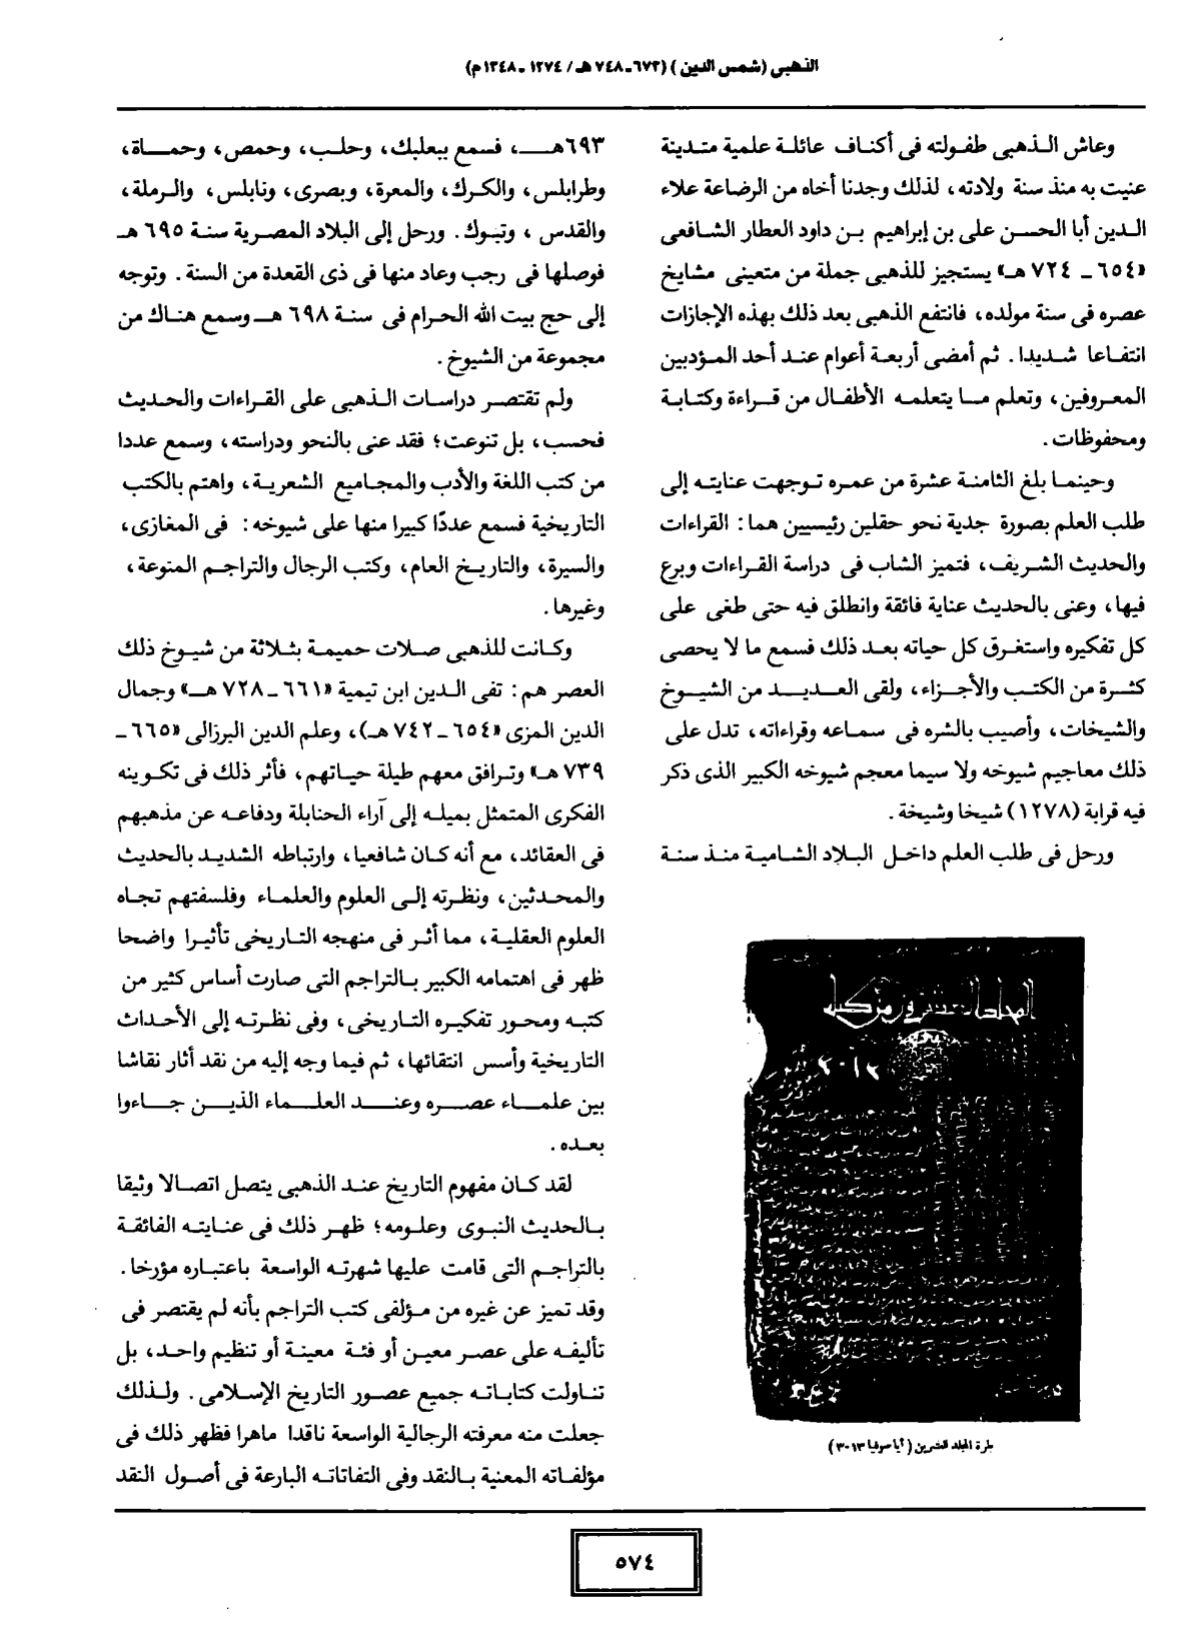 الذهبى (شمس الدين) (٦٧٣-٧٤٨ هـ / ١٢٧٤-١٣٤٨م)
وعاش الذهبى طفولته فى أكناف عائلة علمية متدينة
عنيت به منذ سنة ولادته، لذلك وجدنا أخاه من الرضاعة علاء
الدين أبا الحسن على بن إبراهيم بن داود العطار الشافعى
«٦٥٤ - ٧٢٤ هـ» يستجيز للذهبى جملة من متعينى مشايخ
عصره فى سنة مولده، فانتفع الذهبى بعد ذلك بهذه الإجازات
انتفاعا شديدا. ثم أمضى أربعة أعوام عند أحد المؤدبين
المعروفين، وتعلم ما يتعلمه الأطفال من قراءة وكتابة
ومحفوظات.
وحينما بلغ الثامنة عشرة من عمره توجهت عنايته إلى
طلب العلم بصورة جدية نحو حقلين رئيسيين هما: القراءات
والحديث الشريف، فتميز الشاب فى دراسة القراءات وبرع
فيها، وعنى بالحديث عناية فائقة وانطلق فيه حتى طغى على
كل تفكيره واستغرق كل حياته بعد ذلك فسمع ما لا يحصى
كثرة من الكتب والأجزاء، ولقى العديد من الشيوخ
والشيخات، وأصيب بالشره فى سماعه وقراءاته، تدل على
ذلك معاجيم شيوخه ولا سيما معجم شيوخه الكبير الذى ذكر
فيه قرابة (١٢٧٨) شيخا وشيخة.
ورحل فى طلب العلم داخل البلاد الشامية منذ سنة
المجلد العشرون من كتاب
٣٠١٣
طرة المجلد العشرين (أيا صوفيا ٣٠١٣)
٦٩٣هـ، فسمع ببعلبك، وحلب، وحمص، وحماة،
وطرابلس، والكرك، والمعرة، وبصرى، ونابلس، والرملة،
والقدس، وتبوك. ورحل إلى البلاد المصرية سنة ٦٩٥ هـ
فوصلها فى رجب وعاد منها فى ذى القعدة من السنة. وتوجه
إلى حج بيت الله الحرام فى سنة ٦٩٨ هـ وسمع هناك من
مجموعة من الشيوخ.
ولم تقتصر دراسات الذهبى على القراءات والحديث
فحسب، بل تنوعت؛ فقد عنى بالنحو ودراسته، وسمع عددا
من كتب اللغة والأدب والمجاميع الشعرية، واهتم بالكتب
التاريخية فسمع عددًا كبيرا منها على شيوخه: فى المغازى،
والسيرة، والتاريخ العام، وكتب الرجال والتراجم المنوعة،
وغيرها.
وكانت للذهبى صلات حميمة بثلاثة من شيوخ ذلك
العصر هم: تفى الدين ابن تيمية «٦٦١ - ٧٢٨ هـ» وجمال
الدين المزى «٦٥٤ - ٧٤٢ هـ)، وعلم الدين البرزالى «٦٦٥ -
٧٣٩ هـ» وترافق معهم طيلة حياتهم، فأثر ذلك فى تكوينه
الفكرى المتمثل بميله إلى آراء الحنابلة ودفاعه عن مذهبهم
فى العقائد، مع أنه كان شافعيا، وارتباطه الشديد بالحديث
والمحدثين، ونظرته إلى العلوم والعلماء وفلسفتهم تجاه
العلوم العقلية، مما أثر فى منهجه التاريخى تأثيرا واضحا
ظهر فى اهتمامه الكبير بالتراجم التى صارت أساس كثير من
كتبه ومحور تفكيره التاريخى، وفى نظرته إلى الأحداث
التاريخية وأسس انتقائها، ثم فيما وجه إليه من نقد أثار نقاشا
بين علماء عصره وعند العلماء الذين جاءوا
بعده.
لقد كان مفهوم التاريخ عند الذهبى يتصل اتصالا وثيقا
بالحديث النبوى وعلومه؛ ظهر ذلك فى عنايته الفائقة
بالتراجم التى قامت عليها شهرته الواسعة باعتباره مؤرخا.
وقد تميز عن غيره من مؤلفى كتب التراجم بأنه لم يقتصر فى
تأليفه على عصر معين أو فئة معينة أو تنظيم واحد، بل
تناولت كتاباته جميع عصور التاريخ الإسلامى. ولذلك
جعلت منه معرفته الرجالية الواسعة ناقدا ماهرا فظهر ذلك فى
مؤلفاته المعنية بالنقد وفى التفاتاته البارعة فى أصول النقد
٥٧٤